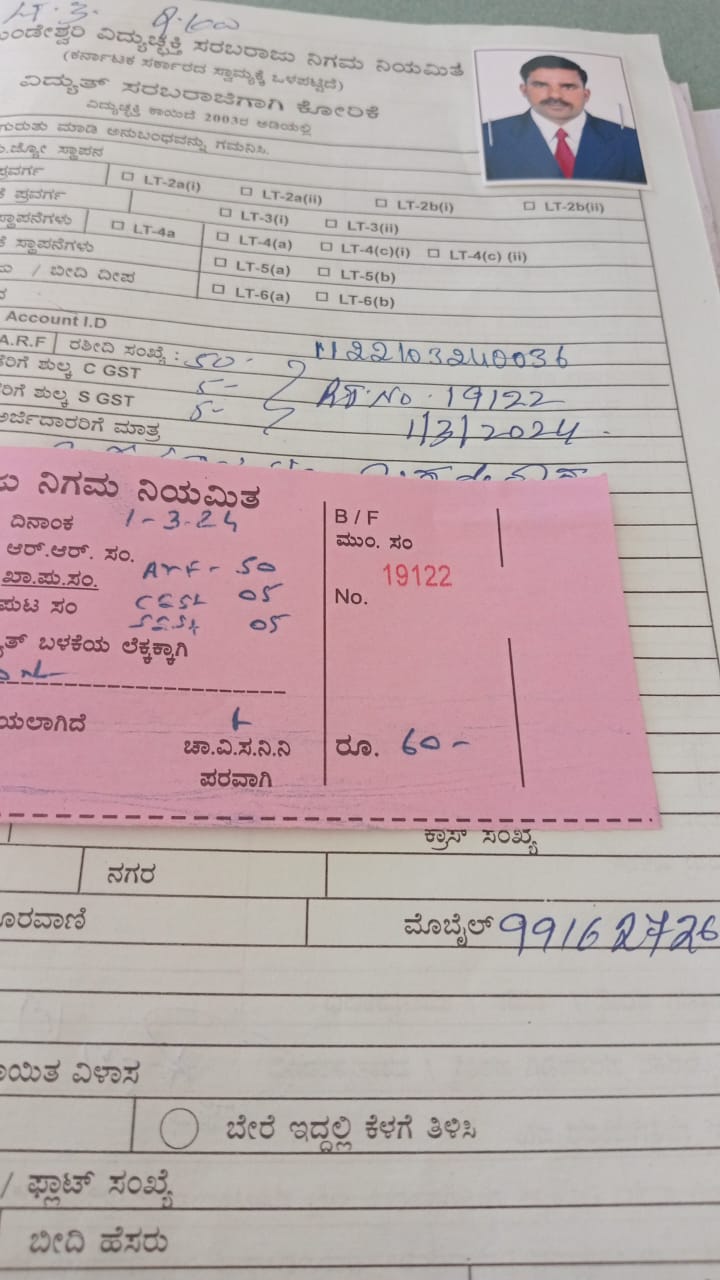 LT-3.
ಂಡೇಶ್ವರಿ ವಿದ್ಯುಚ್ಛಕ್ತಿ ಸರಬರಾಜು ನಿಗಮ ನಿಯಮಿತ
(ಕರ್ನಾಟಕ ಸರ್ಕಾರದ ಸ್ವಾಮ್ಯಕ್ಕೆ ಒಳಪಟ್ಟಿದೆ)
ವಿದ್ಯುತ್ ಸರಬರಾಜಿಗಾಗಿ ಕೋರಿಕೆ
ವಿದ್ಯುಚ್ಛಕ್ತಿ ಕಾಯಿದೆ 2003ರ ಅಡಿಯಲ್ಲಿ
ಗುರುತು ಮಾಡಿ ಅನುಬಂಧವನ್ನು ಗಮನಿಸಿ.
ಸ್ಥಾಪನ
ಪ್ರವರ್ಗ □ LT-2a(i) □ LT-2a(ii) □ LT-2b(i) □ LT-2b(ii)
ಕೆ ಪ್ರವರ್ಗ □ LT-3(i) □ LT-3(ii)
ಸ್ಥಾಪನೆಗಳು □ LT-4a □ LT-4(a) □ LT-4(c)(i) □ LT-4(c) (ii)
ಕೆ ಸ್ಥಾಪನೆಗಳು □ LT-5(a) □ LT-5(b)
/ ಬೀದಿ ದೀಪ □ LT-6(a) □ LT-6(b)
Account I.D
A.R.F ರಶೀದಿ ಸಂಖ್ಯೆ : 50- 1122103240036
ಶುಲ್ಕ C GST 5- RT.No. 19122
ಶುಲ್ಕ S GST 5- 1/3/2024
ಅರ್ಜಿದಾರರಿಗೆ ಮಾತ್ರ
ನಿಗಮ ನಿಯಮಿತ
ದಿನಾಂಕ 1-3-24
ಆರ್.ಆರ್. ಸಂ.
ಖಾ.ಪು.ಸಂ. ArF- 50
ಪುಟ ಸಂ CGST 05
SGST 05
ತ್ ಬಳಕೆಯ ಲೆಕ್ಕಕ್ಕಾಗಿ
ಯಲಾಗಿದೆ
ಚಾ.ವಿ.ಸ.ನಿ.ನಿ
ಪರವಾಗಿ
B / F
ಮುಂ. ಸಂ
19122
No.
ರೂ. 60-
ಕ್ರಾಸ್ ಸಂಖ್ಯೆ
ನಗರ
ೂರವಾಣಿ ಮೊಬೈಲ್ 99162726
ಾಯಿತ ವಿಳಾಸ
ಬೇರೆ ಇದ್ದಲ್ಲಿ ಕೆಳಗೆ ತಿಳಿಸಿ
/ ಫ್ಲಾಟ್ ಸಂಖ್ಯೆ
ಬೀದಿ ಹೆಸರು